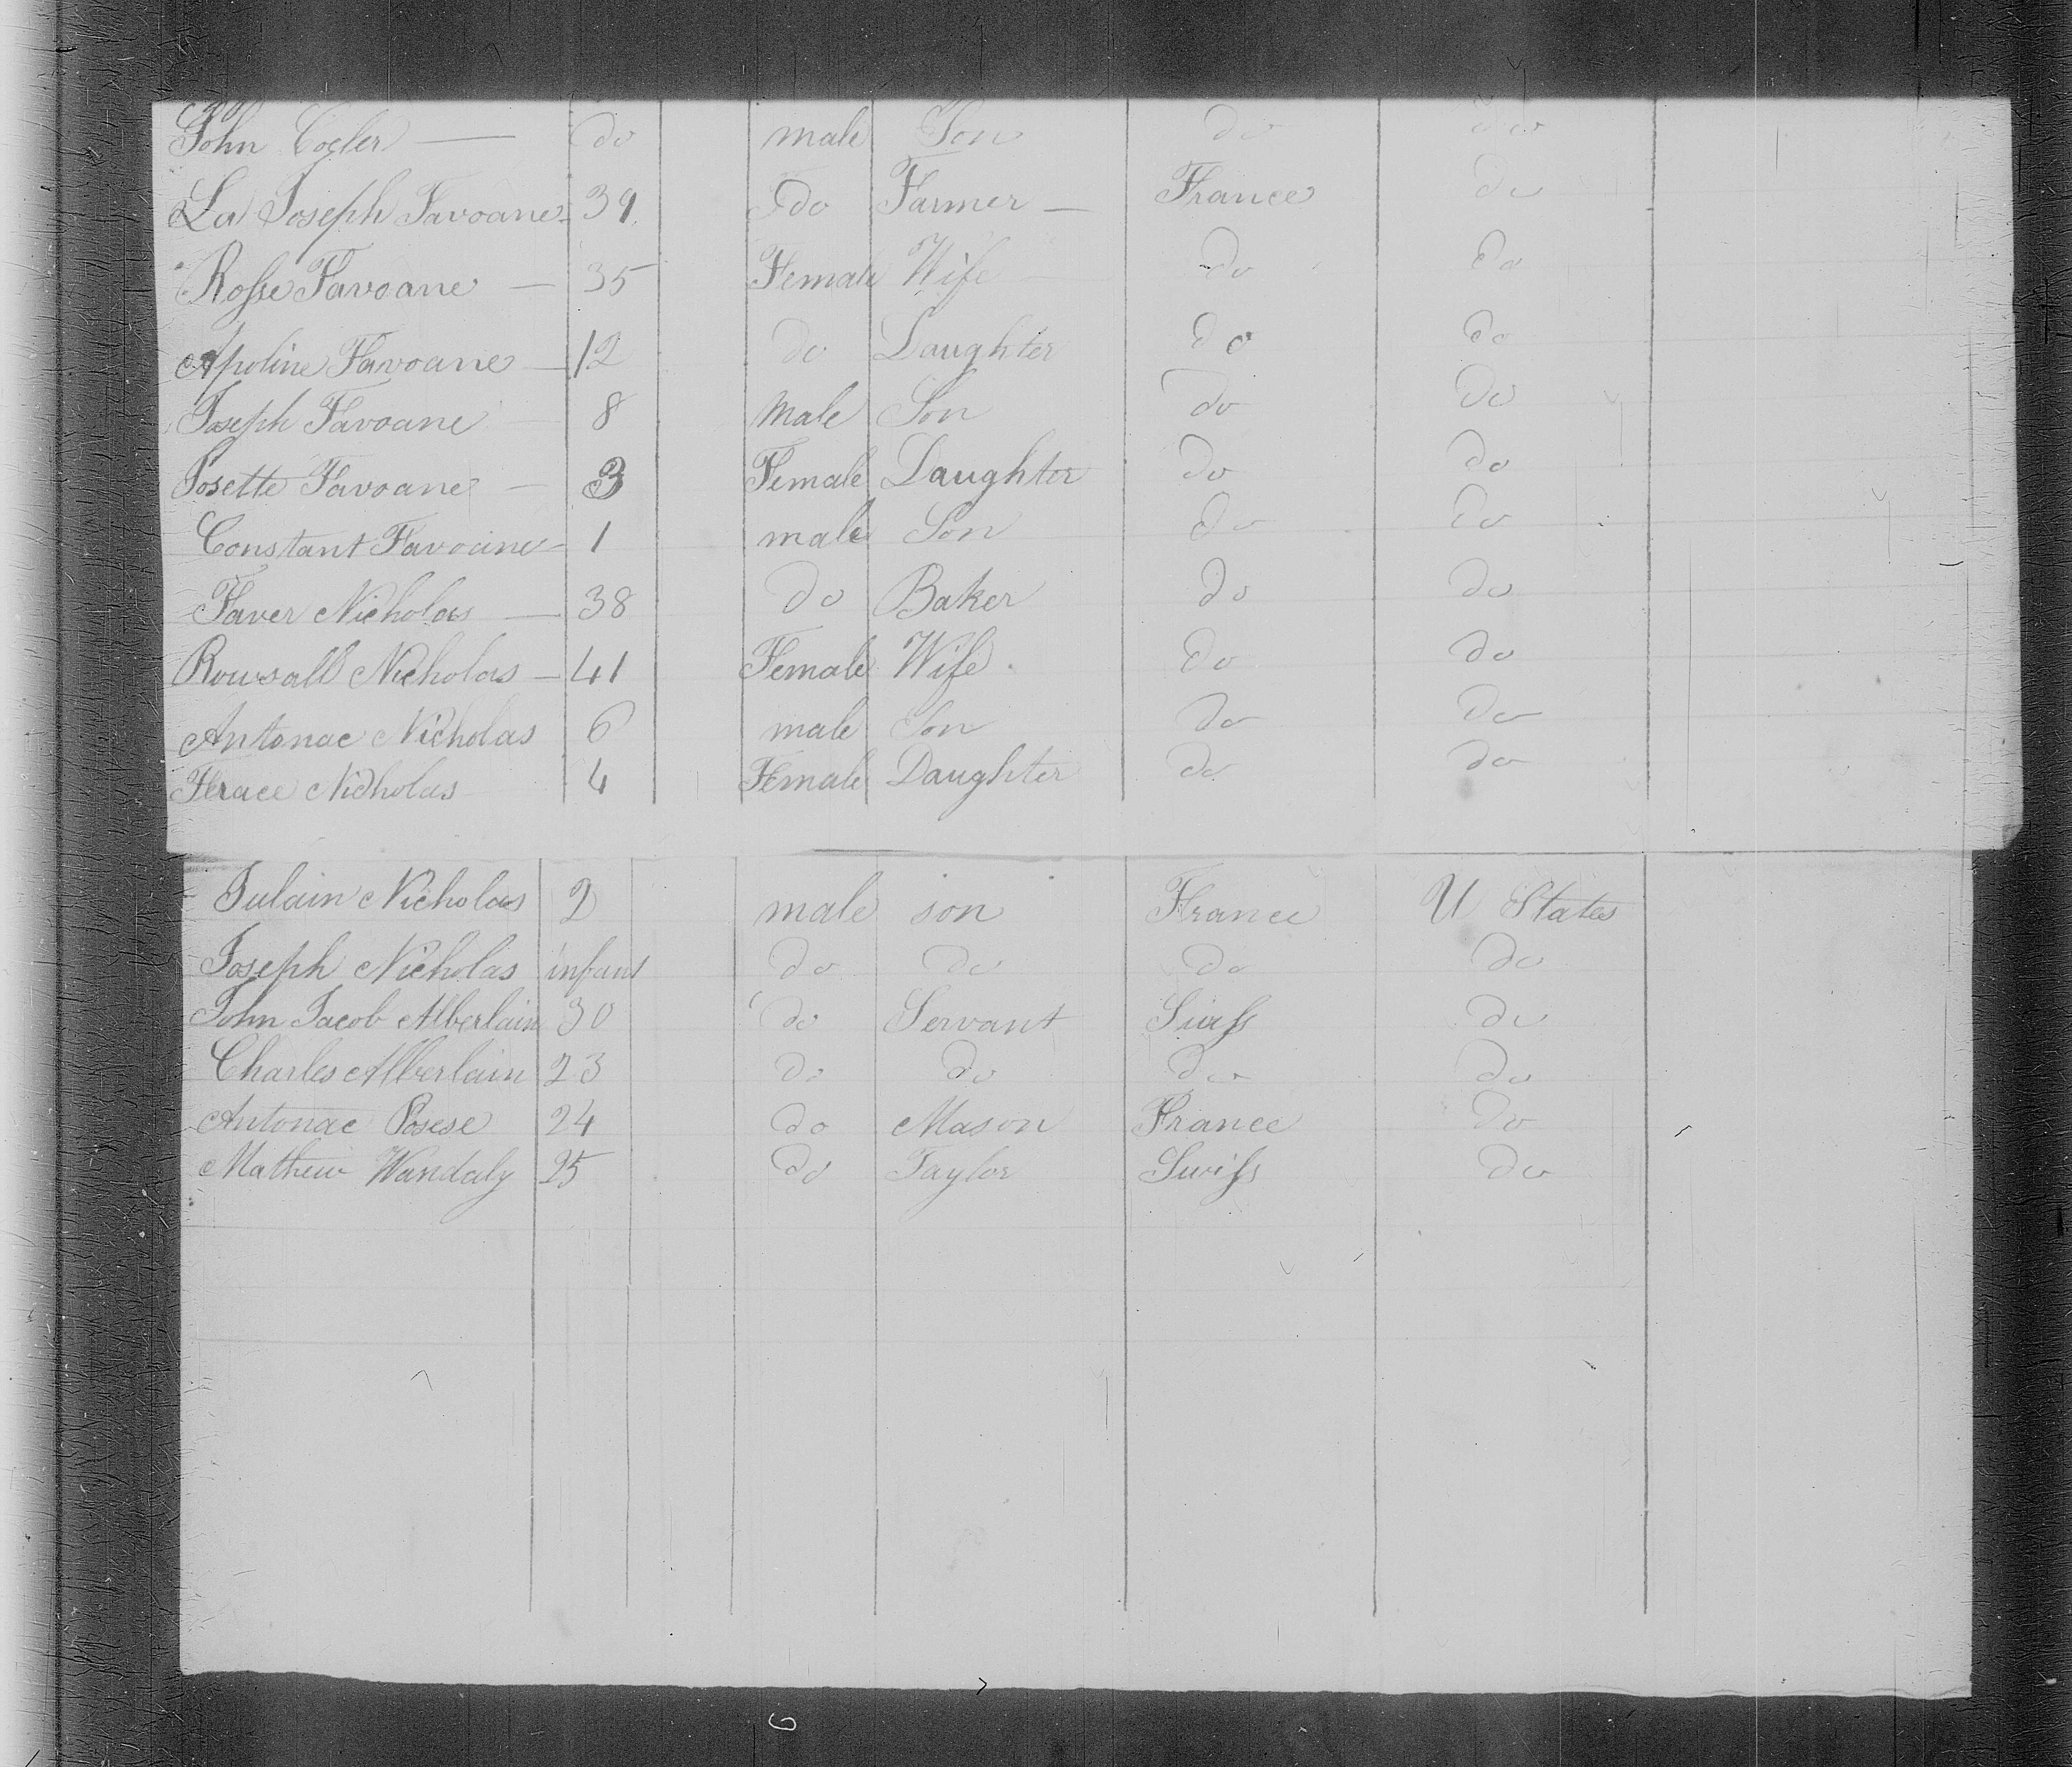 John Cogler — do male Son do do
La Joseph Favoane - 39 do Farmer — France do
Rosse Favoane — 35 Female Wife do do
Apoline Favoane — 12 do Daughter do do
Joseph Favoane 8 Male Son do do
Rosette Favoane — 3 Female Daughter do do
Constant Favoane - 1 male Son do do
Faver Nicholas — 38 do Baker do do
Rowsall Nicholas — 41 Female Wife do do
Antonae Nicholas 6 male Son do do
Nicholas 4 Female Daughter do do
Julain Nicholas 2 male son France U States
Joseph Nicholas infant do do do do
John Jacob Alberlain 30 do Servant Swiss do
Charles Alberlain 23 do do do do
Antonae 24 do Mason France do
Mathew Wandaly 25 do Taylor Swiss do